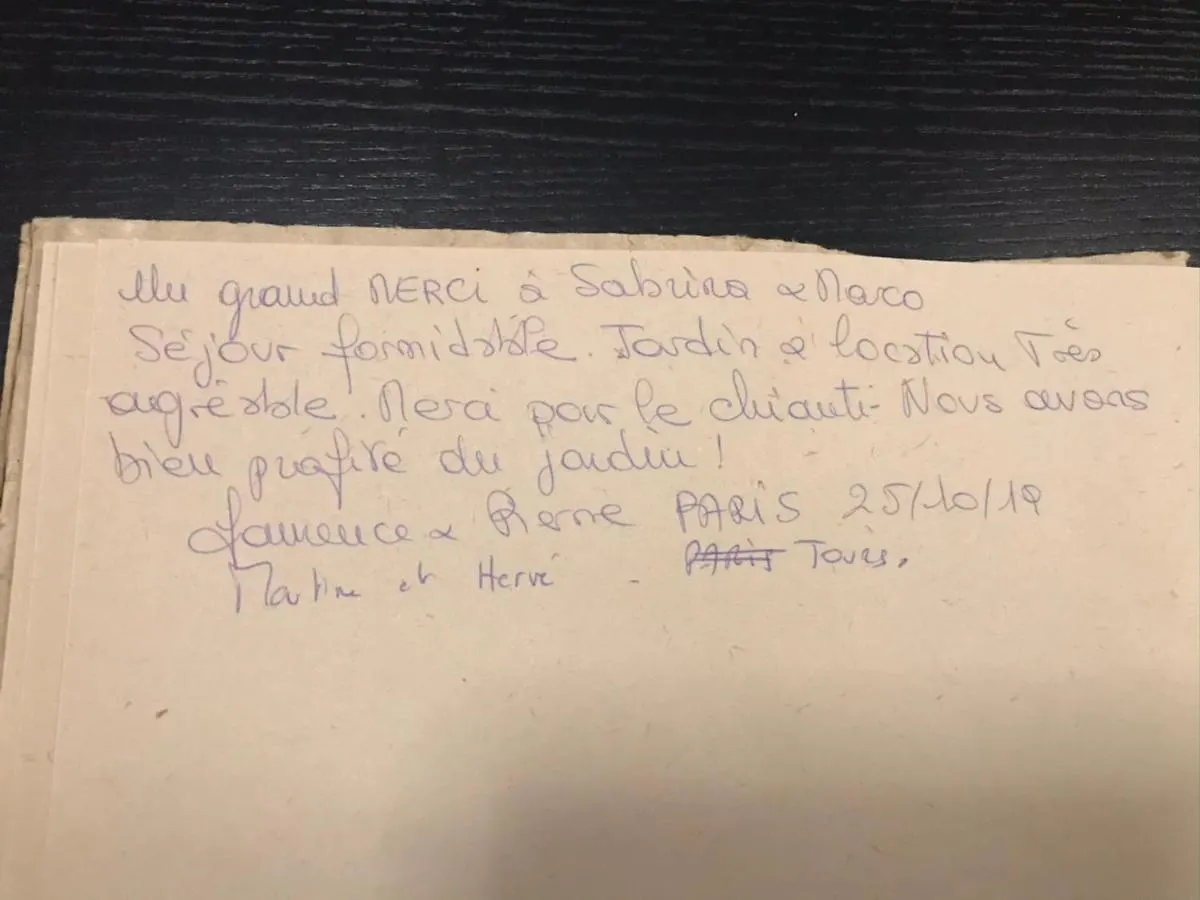 Un grand MERCI à Sabrina & Marco
Séjour formidable. Jardin & location Très
agréable. Merci pour le chianti- Nous avons
bien profité du jardin !
Laurence & Pierre PARIS 25/10/19
Martine et Hervé - PARIS Tours.